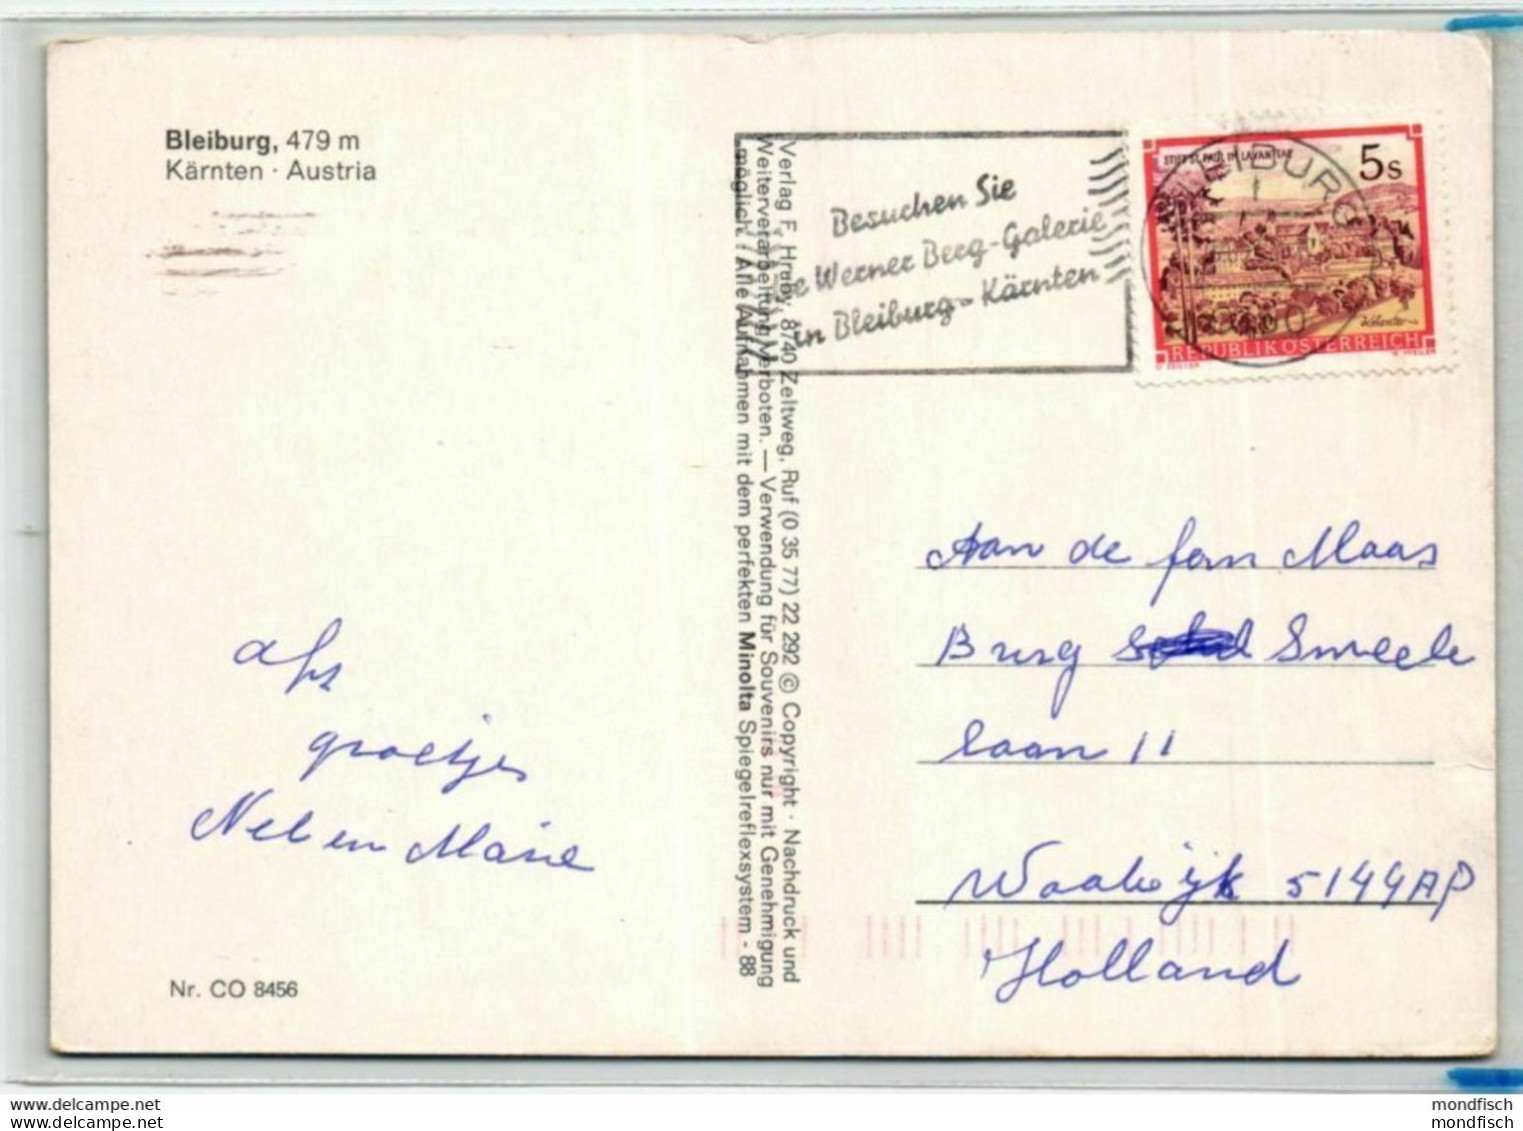 Bleiburg, 479 m
Kärnten · Austria
afz
groetjes
Nel en Marie
Nr. CO 8456
Verlag F. Hruby, 8740 Zeltweg, Ruf (0 35 77) 22 292 © Copyright · Nachdruck und
Weiterverarbeitung verboten. — Verwendung für Souvenirs nur mit Genehmigung
möglich. / Alle Aufnahmen mit dem perfekten Minolta Spiegelreflexsystem - 88
Besuchen Sie
Werner Berg-Galerie
in Bleiburg - Kärnten
BLEIBURG
STIFT ST. PAUL IM LAVANTTAL
5s
REPUBLIK ÖSTERREICH
Aan de fam Maas
Burg Smeele
laan 11
Waalwijk 5144AP
Holland
mondfisch
mondfisch
www.delcampe.net
www.delcampe.net